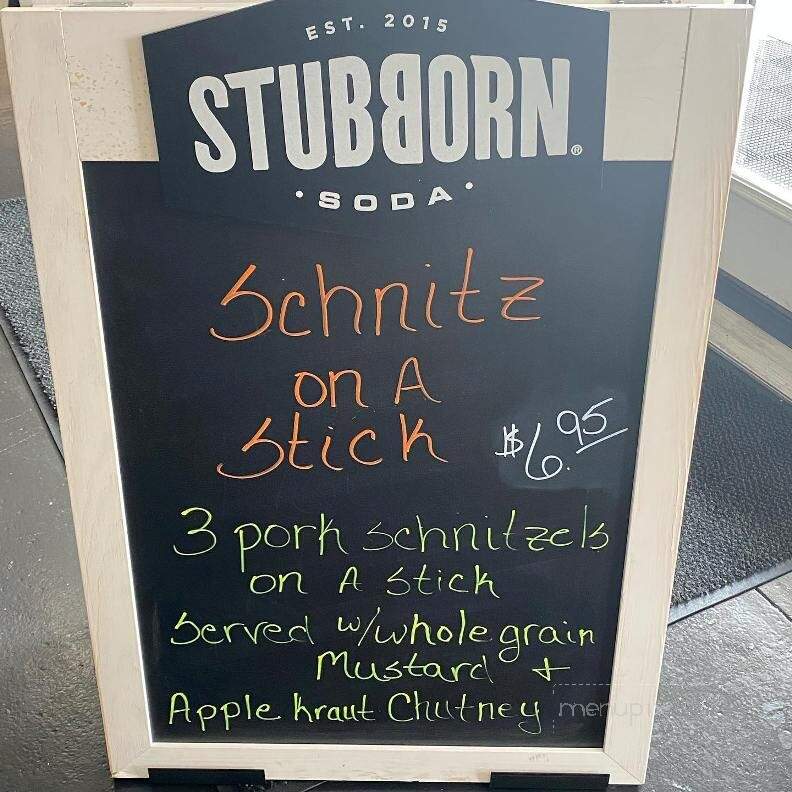 EST. 2015
STUBBORN®
• SODA •
Schnitz
on A
Stick $6.95
3 pork schnitzels
on A stick
Served w/whole grain
Mustard +
Apple kraut Chutney